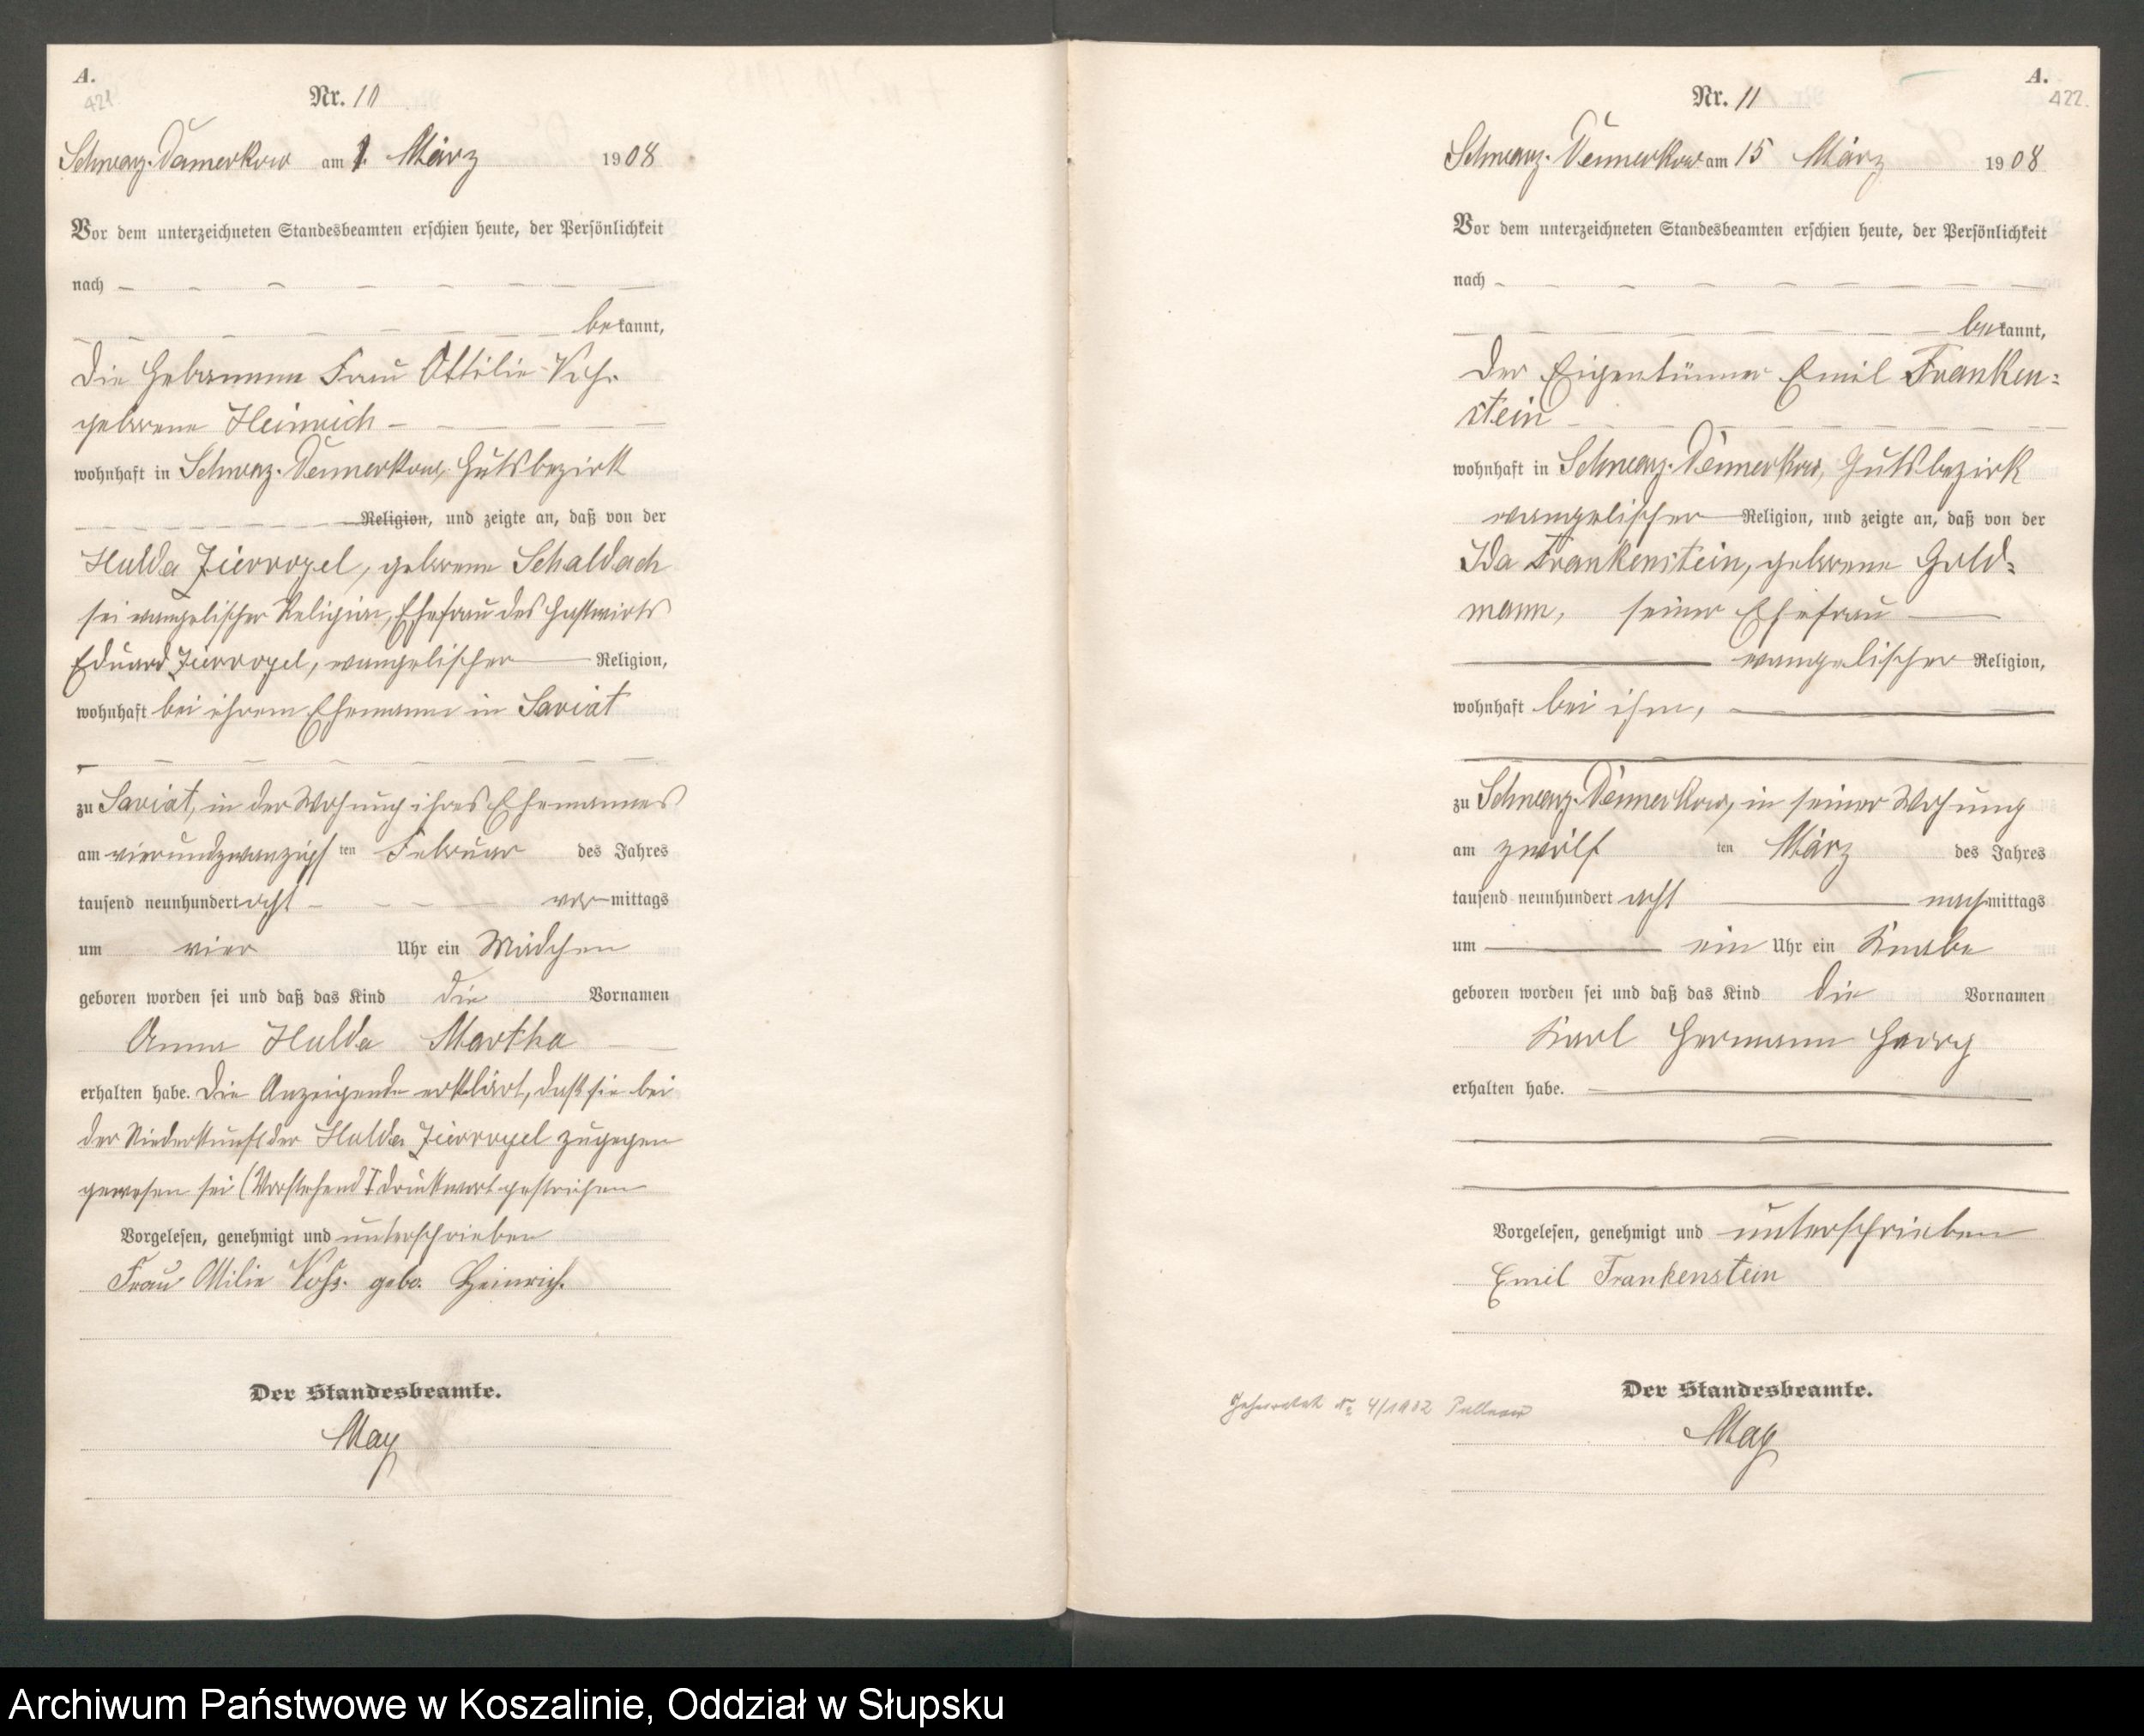 A.
421
Nr. 10
Schwarz-Damerkow am 1. März 1908
Vor dem unterzeichneten Standesbeamten erschien heute, der Persönlichkeit
nach
bekannt,
die Hebamme Frau Ottilie Voß
geborene Heinrich
wohnhaft in Schwarz-Damerkow, Gutsbezirk
Religion, und zeigte an, daß von der
Hulda Ziervogel, geborene Schaldach
sei evangelischer Religion, Ehefrau des Gastwirts
Eduard Ziervogel, evangelischer Religion,
wohnhaft bei ihrem Ehemanne in Saviat
zu Saviat, in der Wohnung ihres Ehemannes
am vierundzwanzigsten Februar des Jahres
tausend neunhundert acht vormittags
um vier Uhr ein Mädchen
geboren worden sei und daß das Kind die Vornamen
Anna Hulda Martha
erhalten habe. Die Anzeigende erklärt, daß sie bei
der Niederkunft der Hulda Ziervogel zugegen
gewesen sei (Vorstehend 1 Druckwort gestrichen
Vorgelesen, genehmigt und unterschrieben
Frau Otilie Voß. gebo. Heinrich.
Der Standesbeamte.
May
A.
422.
Nr. 11
Schwarz-Damerkow am 15 März 1908
Vor dem unterzeichneten Standesbeamten erschien heute, der Persönlichkeit
nach
bekannt,
der Eigentümer Emil Franken=
stein
wohnhaft in Schwarz-Damerkow, Gutsbezirk
evangelischer Religion, und zeigte an, daß von der
Ida Frankenstein, geborene Gold=
mann, seiner Ehefrau
evangelischer Religion,
wohnhaft bei ihm,
zu Schwarz-Damerkow, in seiner Wohnung
am zwölften März des Jahres
tausend neunhundert acht nachmittags
um ein Uhr ein Knabe
geboren worden sei und daß das Kind die Vornamen
Karl Hermann Georg
erhalten habe.
Vorgelesen, genehmigt und unterschrieben
Emil Frankenstein
Der Standesbeamte.
May
Archiwum Państwowe w Koszalinie, Oddział w Słupsku